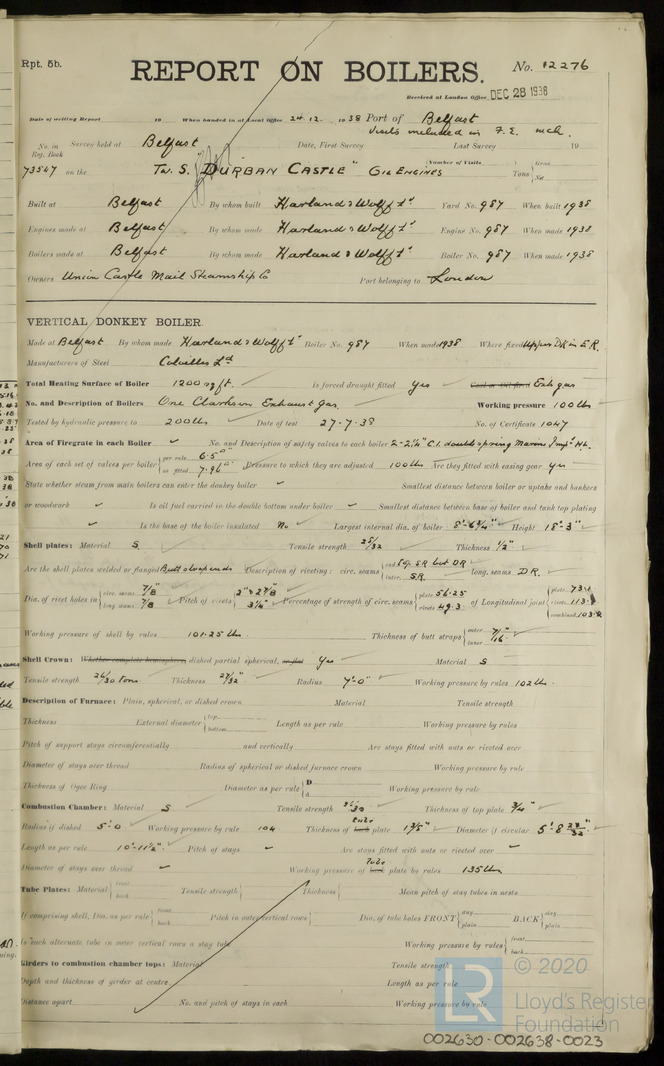 Rpt. 5b.
REPORT ON BOILERS.
No. 12276
Received at London Office DEC 28 1938
Date of writing Report 19 When handed in at Local Office 24.12. 1938 Port of Belfast
Visits included in F.E. mch.
No. in Reg. Book Survey held at Belfast Date, First Survey Last Survey 19
73547 on the Tw. S. "DURBAN CASTLE" Oil Engines (Number of Visits ) Tons { Gross Net
Built at Belfast By whom built Harland & Wolff Ld Yard No. 987 When built 1938
Engines made at Belfast By whom made Harland & Wolff Ld Engine No. 987 When made 1938
Boilers made at Belfast By whom made Harland & Wolff Ld Boiler No. 987 When made 1938
Owners Union Castle Mail Steamship Co Port belonging to London
VERTICAL DONKEY BOILER.
Made at Belfast By whom made Harland & Wolff Ld Boiler No. 987 When made 1938 Where fixed Upper Dk in E.R.
Manufacturers of Steel Colvilles Ld
Total Heating Surface of Boiler 1200 sq ft. Is forced draught fitted Yes Coal or Oil fired Exh gas
No. and Description of Boilers One Clarkson Exhaust Gas. Working pressure 100 lbs
Tested by hydraulic pressure to 200 lbs Date of test 27-7-38 No. of Certificate 1047
Area of Firegrate in each Boiler ✓ No. and Description of safety valves to each boiler 2-2¼" C.I. double spring Marine
Area of each set of valves per boiler { per rule 6.5 □" as fitted 7.96 □" Pressure to which they are adjusted 100 lbs Are they fitted with easing gear yes
State whether steam from main boilers can enter the donkey boiler ✓ Smallest distance between boiler or uptake and bunkers
or woodwork ✓ Is oil fuel carried in the double bottom under boiler ✓ Smallest distance between base of boiler and tank top plating
✓ Is the base of the boiler insulated No Largest internal dia. of boiler 8'-6¾" Height 18'-3"
Shell plates: Material S Tensile strength 28/32 Thickness ½"
Are the shell plates welded or flanged Butt straps ends Description of riveting: circ. seams { end inter. S.R. long. seams D.R.
Dia. of rivet holes in { circ. seams 7/8" long. seams 7/8 Pitch of rivets { 2" & 2 7/8 3¼" Percentage of strength of circ. seams { plate 56.25 rivets 49.3 of Longitudinal joint { plate 73.1 rivets 113. combined 103.2
Working pressure of shell by rules 101.25 lbs Thickness of butt straps { outer 7/16" inner
Shell Crown: Whether complete hemisphere, dished partial spherical, or flat Yes Material S
Tensile strength 26/30 tons Thickness 27/32" Radius 7'-0" Working pressure by rules 102 lbs
Description of Furnace: Plain, spherical, or dished crown Material Tensile strength
Thickness External diameter { top bottom Length as per rule Working pressure by rules
Pitch of support stays circumferentially and vertically Are stays fitted with nuts or riveted over
Diameter of stays over thread Radius of spherical or dished furnace crown Working pressure by rule
Thickness of Ogee Ring Diameter as per rule { D d Working pressure by rule
Combustion Chamber: Material S Tensile strength 26/30 Thickness of top plate ¾"
Radius if dished 5'-0 Working pressure by rule 104 Thickness of tube back plate Diameter if circular 5'-8 27/32"
Length as per rule 10'-11½" Pitch of stays ✓ Are stays fitted with nuts or riveted over ✓
Diameter of stays over thread ✓ Working pressure of tube back plate by rules 135 lbs
Tube Plates: Material { front back Tensile strength { Thickness { Mean pitch of stay tubes in nests
If comprising shell, Dia. as per rule { front back Pitch in outer vertical rows { Dia. of tube holes FRONT { stay plain BACK { stay plain
Is each alternate tube in outer vertical rows a stay tube Working pressure by rules { front back
Girders to combustion chamber tops: Material Tensile strength
Depth and thickness of girder at centre Length as per rule
Distance apart No. and pitch of stays in each Working pressure by rule
© 2020
LR
Lloyd's Register
Foundation
002630-002638-0023